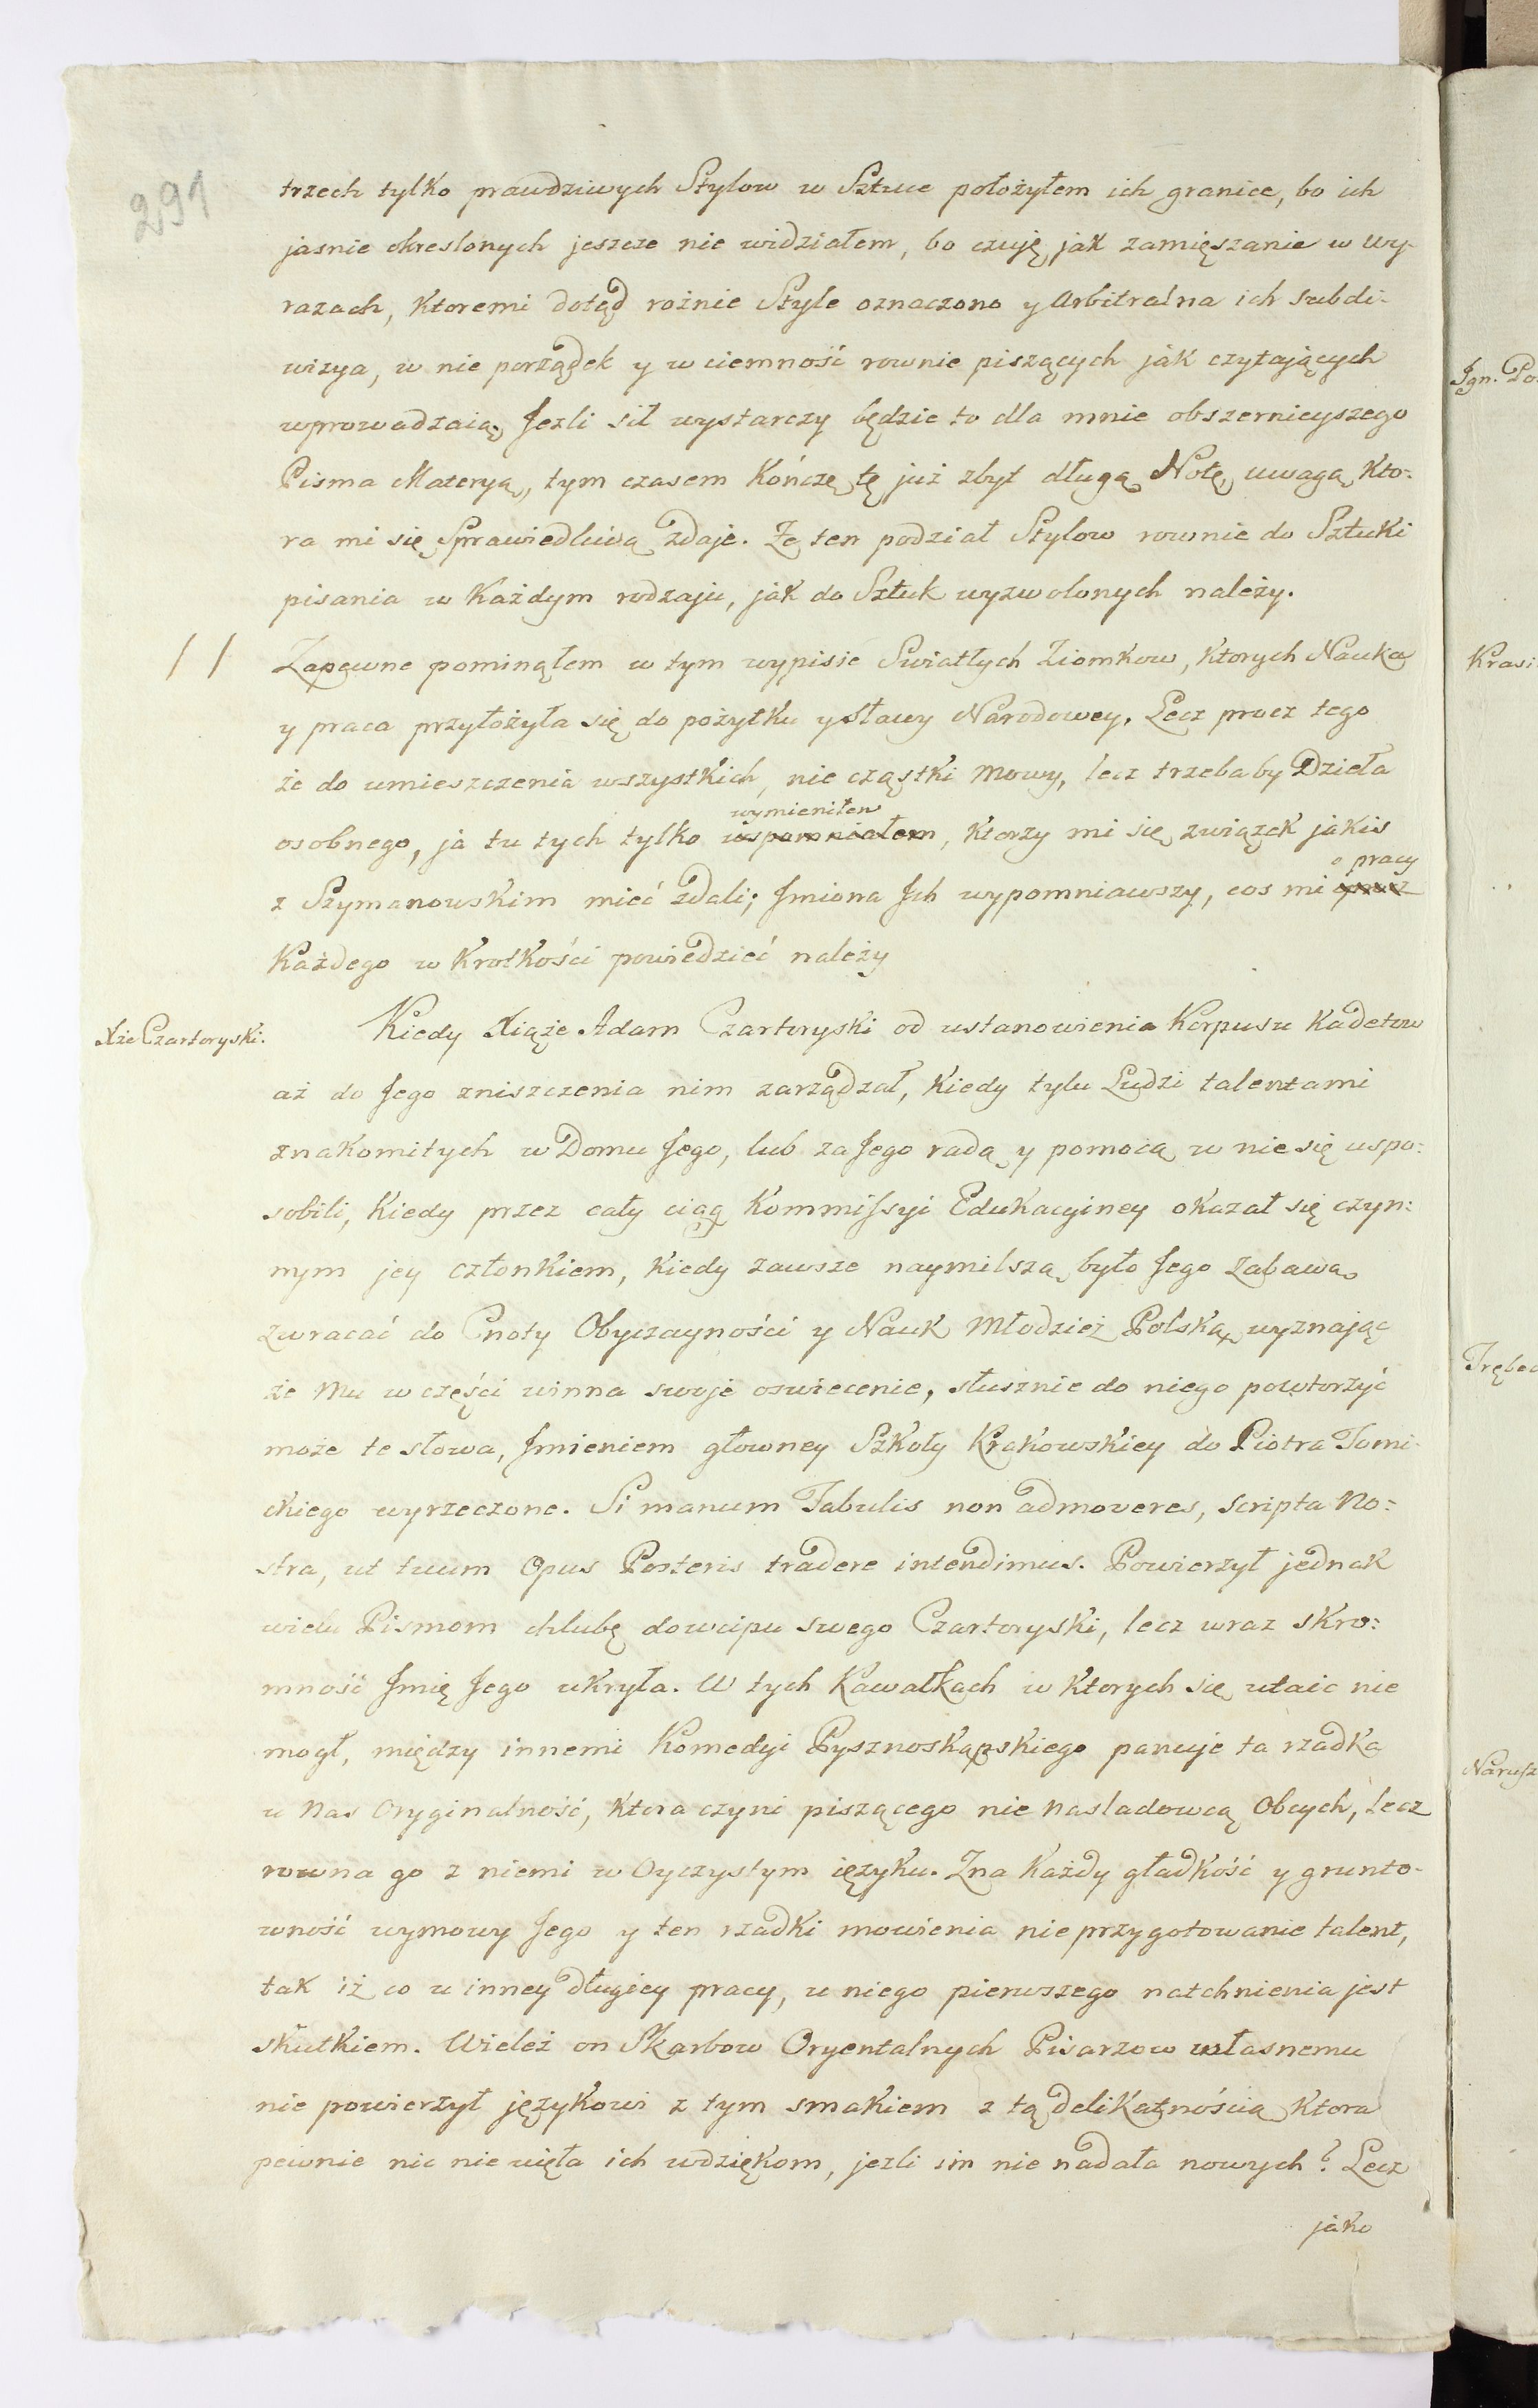 291
trzech tylko prawdziwych Stylow w Sztuce położyłem ich granice, bo ich
jasnie okreslonych jeszcze nie widziałem, bo czuję, jak zamięszanie w wy-
razach, ktoremi dotąd rożnie Style oznaczono y Arbitralna ich subdi-
wizya, w nie porządek y w ciemność rownie piszących jak czytających
wprowadzaią. Jezli sił wystarczy będzie to dla mnie obszernieyszego
Pisma Materyą, tym czasem kończę tę już zbyt długą Notę, uwagą kto:
ra mi się Sprawiedliwą zdaje. Że ten podział Stylow rownie do Sztuki
pisania w każdym rodzaju, jak do Sztuk wyzwolonych należy.
// Zapewne pominąłem w tym wypisie Swiatłych Ziomkow, ktorych Nauka
y praca przyłożyła się do pożytku y sławy Narodowey. Lecz procz tego
że do umieszczenia wszystkich, nie cząstki mowy, lecz trzeba by Dzieła
wymieniłem
osobnego, ja tu tych tylko wspomniałem, ktorzy mi się związek jakis
o pracy
z Szymanowskim mieć zdali; Jmiona Jch wypomniawszy, cos mi
każdego w krotkości powiedzieć należy
Xże Czartoryski.
Kiedy Xiąże Adam Czartoryski od ustanowienia Korpusu Kadetow
aż do Jego zniszczenia nim zarządzał, kiedy tylu Ludzi talentami
znakomitych w Domu Jego, lub za Jego radą y pomocą w nie się uspo:
sobili, kiedy przez cały ciąg Kommissyi Edukacyiney okazał się czyn:
nym jey członkiem, kiedy zawsze naymilszą było Jego zabawą
zwracać do Cnoty Obyczayności y Nauk Młodzież Polską, wyznając
że Mu w części winna swoje oswiecenie, słusznie do niego powtorzyć
może te słowa, Jmieniem głowney Szkoły Krakowskiey do Piotra Tomi-
ckiego wyrzeczone. Si manum Tabulis non admoveres, scripta No:
stra, ut tuum Opus Posteris tradere intendimus. Powierzył jednak
wielu Pismom chlubę dowcipu swego Czartoryski, lecz wraz skro:
mność Jmię Jego ukryła. W tych kawałkach w ktorych się utaic nie
mogł, między innemi Komedyi Pysznoskąpskiego panuje ta rzadka
u Nas Oryginalność, ktora czyni piszącego nie nasladowcą Obcych, lecz
rowna go z niemi w Oyczystym ięzyku. Zna każdy gładkość y grunto-
wność wymowy Jego y ten rzadki mowienia nie przygotowanie talent,
tak iż co u inney długiey pracy, u niego pierwszego natchnienia jest
skutkiem. Wieleż on Skarbow Oryentalnych Pisarzow własnemu
nie powierzył językowi z tym smakiem z tą delikatnością, ktora
pewnie nic nie uięła ich wdziękom, jezli im nie nadała nowych? Lecz
jako
Ign. Po
Krasi
Trębec
Narusz